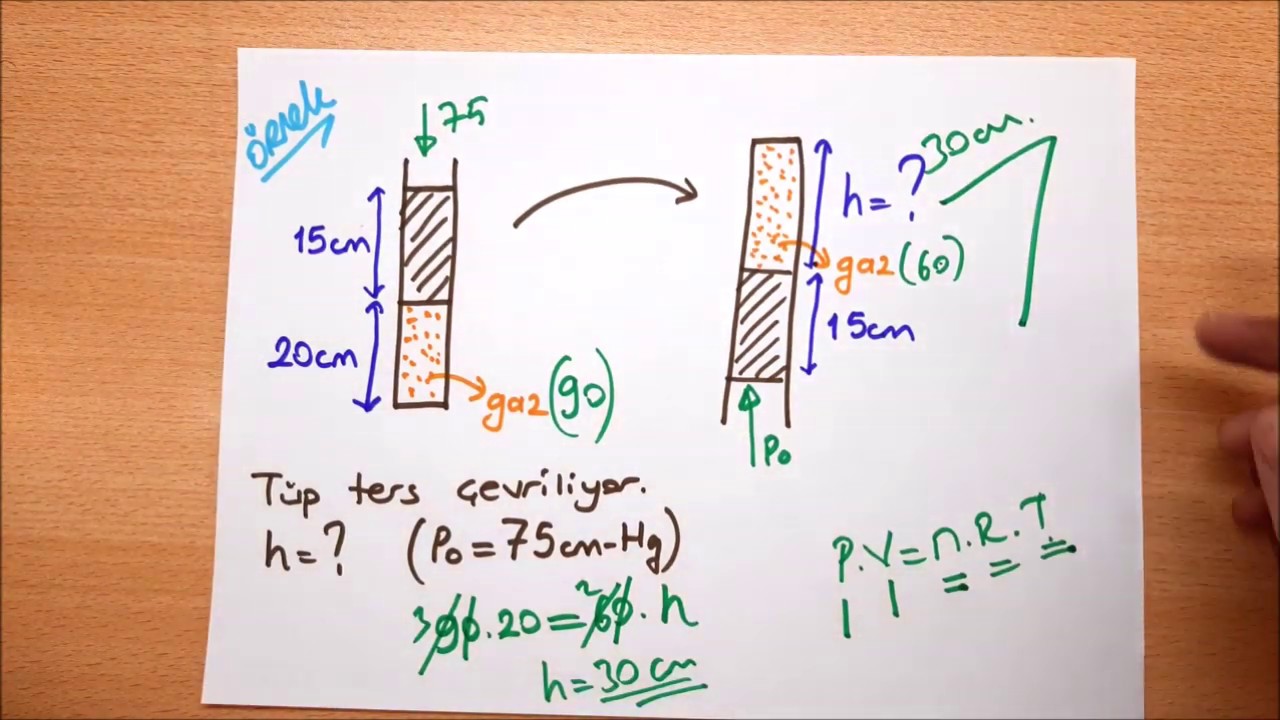 Örnek
75
15cm
20cm
gaz (90)
h=? 30cm.
gaz (60)
15cm
P₀
Tüp ters çevriliyor.
h=? (P₀=75cm-Hg)
3 90.20=2 60.h
h=30 cm
P.V=n.R.T